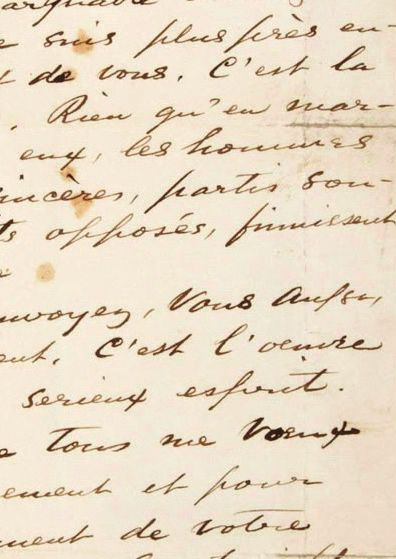 e suis plus près en-
t de vous. C'est la
. Rien qu'en mar-
eux, les hommes
incères, partis son-
ts opposés, finissent
nvoyez, Vous Aussi,
ent. C'est l'oeuvre
serieux esprit.
e tous me Voeux
ement et pour
ment de votre